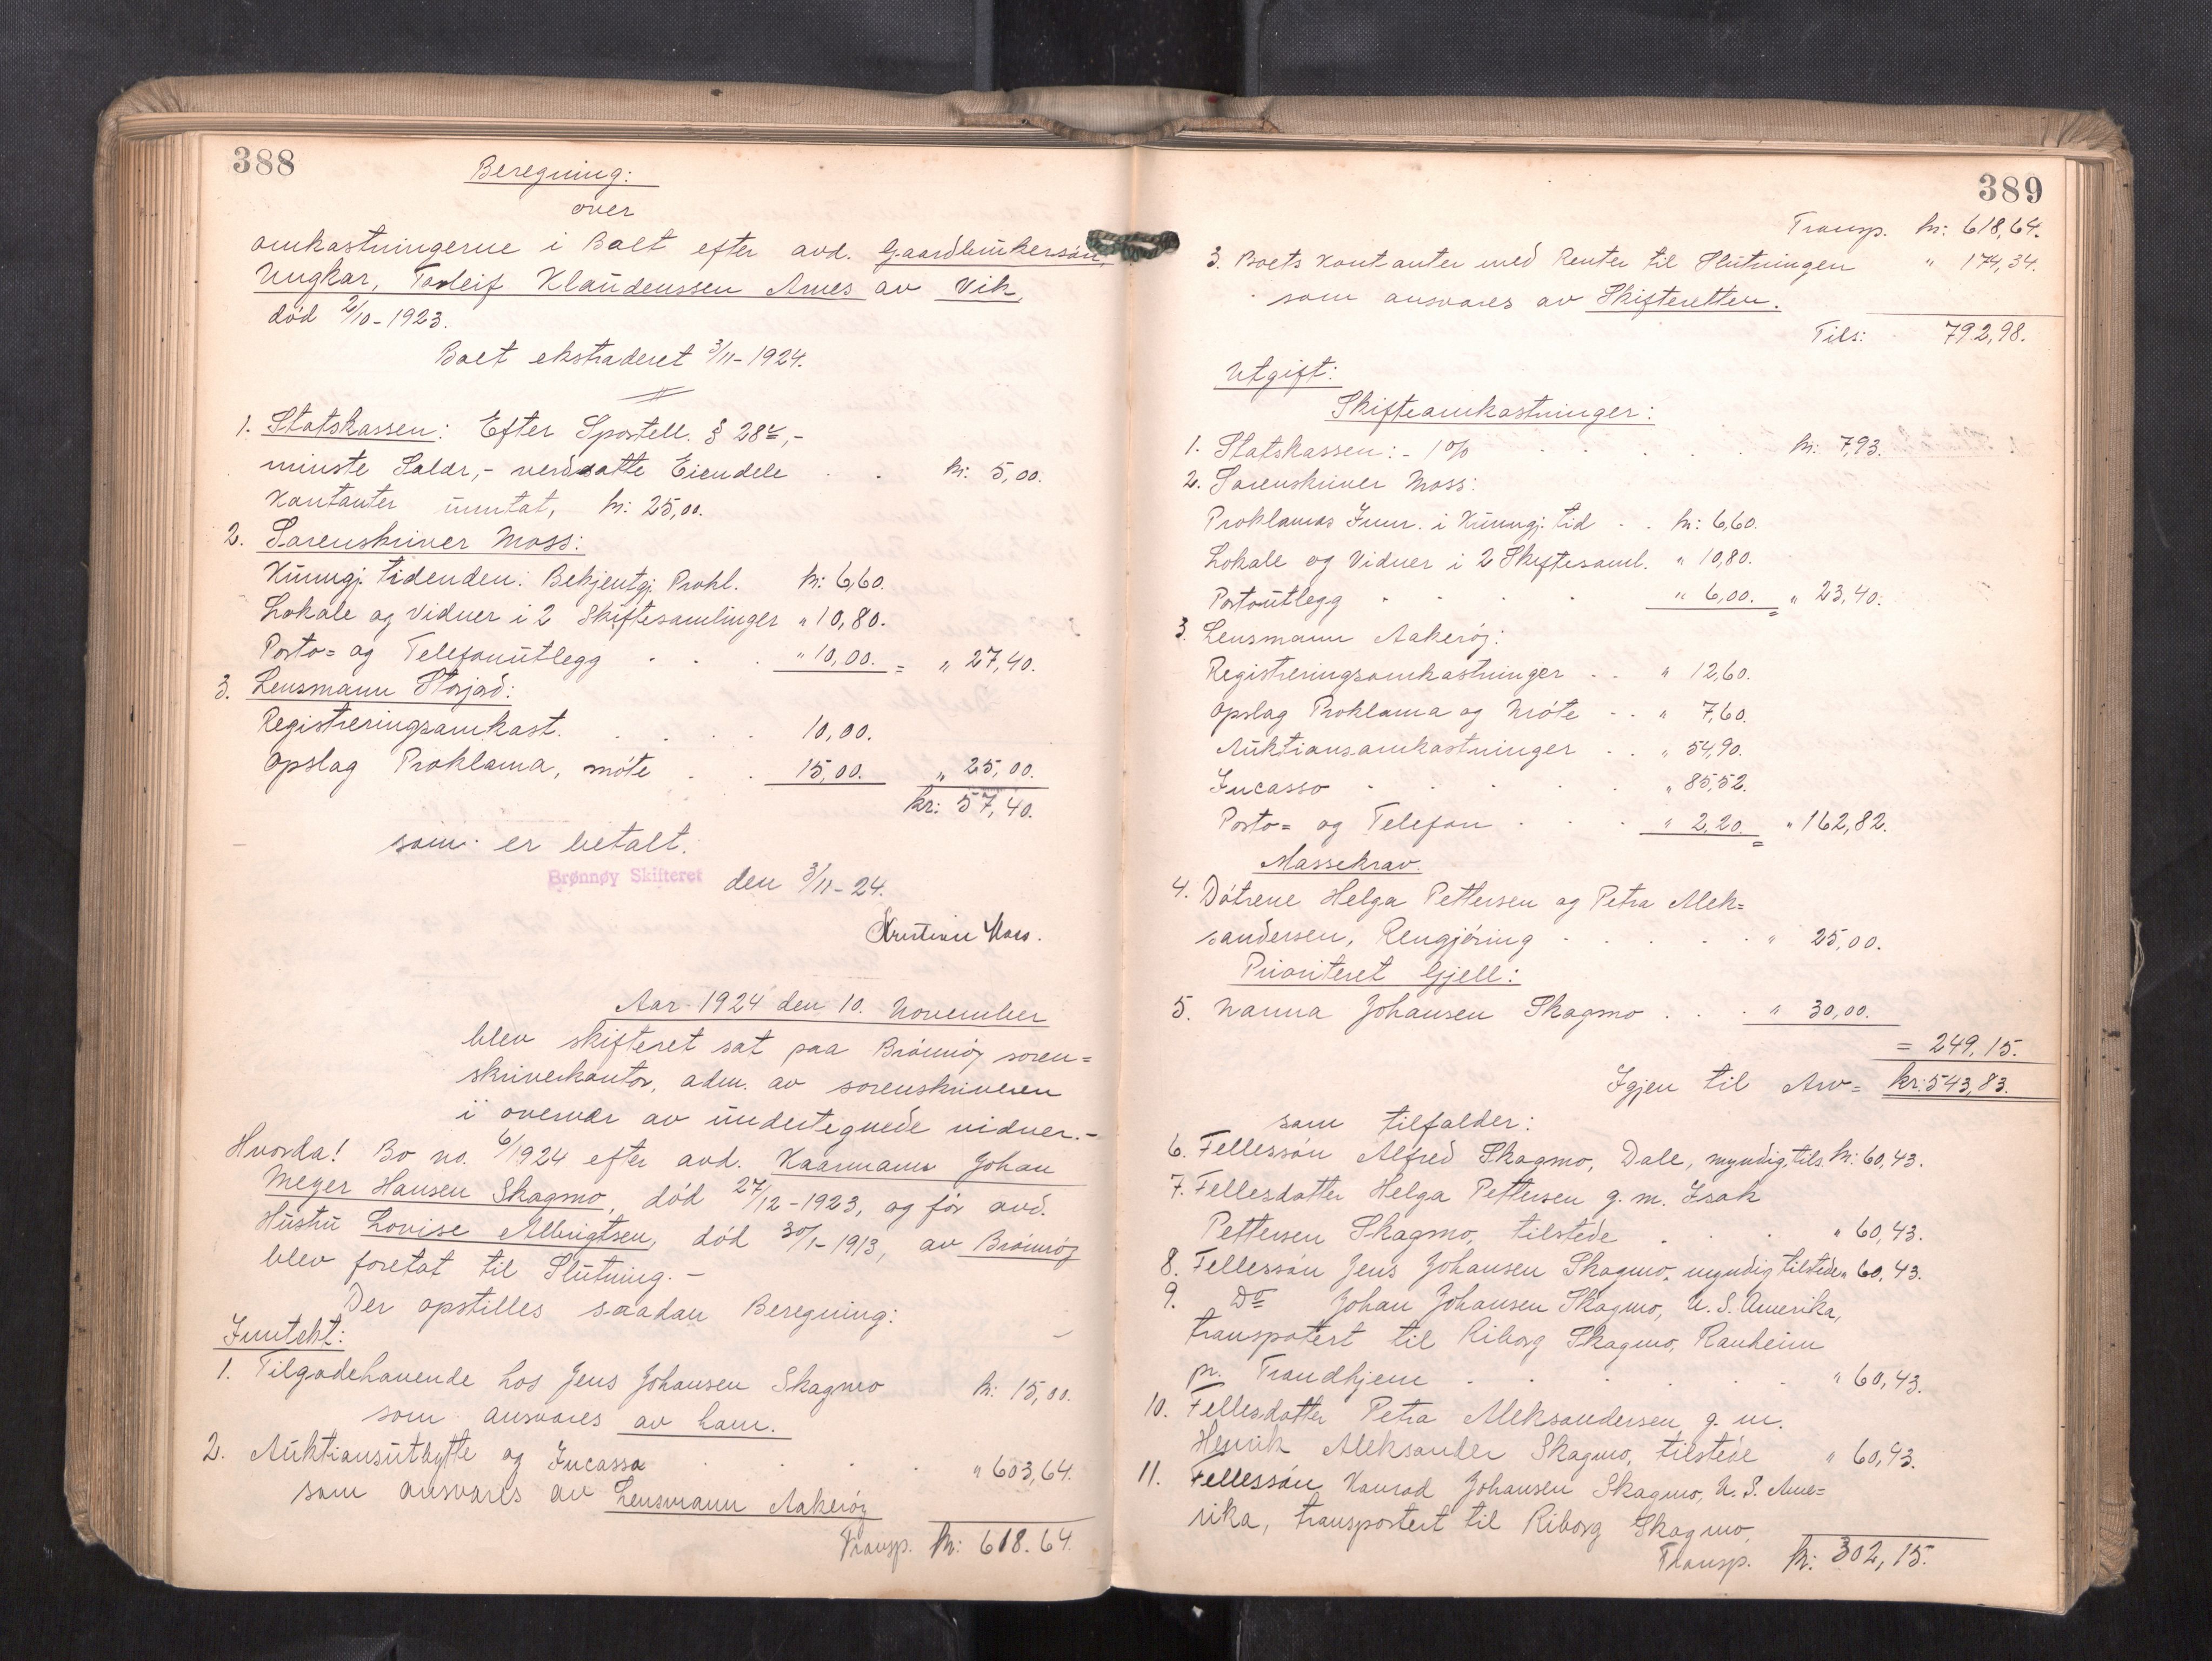 388
Beregning:
over
omkostningerne i Boet efter avd. Gaardbrukersøn,
Ungkar, Torleif Klaudenssen Arnes av Vik,
död 2/10-1923.
Boet ekstraderet 3/11-1924.
1. Statskassen: Efter Sportell. § 28,-
minste Salær,- verdsatte Eiendele . . kr: 5,00.
Kontanter inntat, kr: 25,00.
2. Sorenskriver Moss:
Kunngj. tidenden: Bekjentgj. Prokl. kr: 6,60.
Lokale og Vidner i 2 Skiftesamlinger " 10,80.
Porto= og Telefonutlegg . . . " 10,00. = " 27,40.
3. Lensmann Storjord:
Registreringsomkost. . . . . 10,00.
Opslag Proklama, möte . . 15,00. " 25,00.
kr: 57,40.
som er betalt.
Brønnøy Skifteret den 3/11-24.
Kristian Moss.
Aar 1924 den 10. November
blev skifteret sat paa Brönnöy soren=
skriverkontor, adm. av sorenskriveren
i overvær av undertegnede vidner.-
Hvorda! Bo no. 6/1924 efter avd. Kaarmann Johan
Meyer Hansen Skagmo, död 27/12-1923, og för avd.
Hustru Lovise Albrigtsen, död 30/1-1913, av Brönnöy
blev foretat til Slutning.-
Der opstilles saadan Beregning:
Inntekt:
1. Tilgodehavende hos Jens Johansen Skagmo kr: 15,00.
som ansvares av ham.
2. Auktionsutbytte og Incasso . . . . " 603,64.
som ansvares av Lensmann Aakeröy
Transp. kr: 618.64.
389
Transp. kr: 618,64.
3. Boets Kontanter med Renter til Slutningen " 174,34.
som ansvares av Skifteretten.
Tils: 792,98.
Utgift:
Skifteomkostninger:
1. Statskassen:- 1% . . . . . kr: 7,93.
2. Sorenskriver Moss:
Proklamas Innr. i Kunngj. tid . . kr: 6,60.
Lokale og Vidner i 2 Skiftesaml. " 10,80.
Portoutlegg . . . . " 6,00. = " 23,40.
3. Lensmann Aakeröy:
Registreringsomkostninger . . " 12,60.
Opslag Proklama og Möte . . " 7,60.
Auktionsomkostninger . . " 54,90.
Incasso . . . . . " 85,52.
Porto= og Telefon . . . " 2,20. = " 162,82.
Massekrav.
4. Dötrene Helga Pettersen og Petra Alek=
sandersen, Rengjöring . . . . . " 25,00.
Prioriteret Gjell:
5. Nanna Johansen Skagmo . . . " 30,00.
= 249,15.
Igjen til Arv = kr: 543,83.
som tilfalder:
6. Fellessön Alfred Skagmo, Dale, myndig, tils. kr: 60,43.
7. Fellesdatter Helga Pettersen g. m. Isak
Pettersen Skagmo, tilstede . . . " 60,43.
8. Fellessön Jens Johansen Skagmo, myndig tilstede " 60,43.
9. Do Johan Johansen Skagmo, U.S. Amerika,
transpotert til Riborg Skagmo, Ranheim
pr. Trondhjem . . . . . . " 60,43.
10. Fellesdatter Petra Aleksandersen g. m.
Henrik Aleksander Skagmo, tilstede " 60,43.
11. Fellessön Konrad Johansen Skagmo, U.S. Ame=
rika, transportert til Riborg Skagmo
Transp. kr: 302,15.